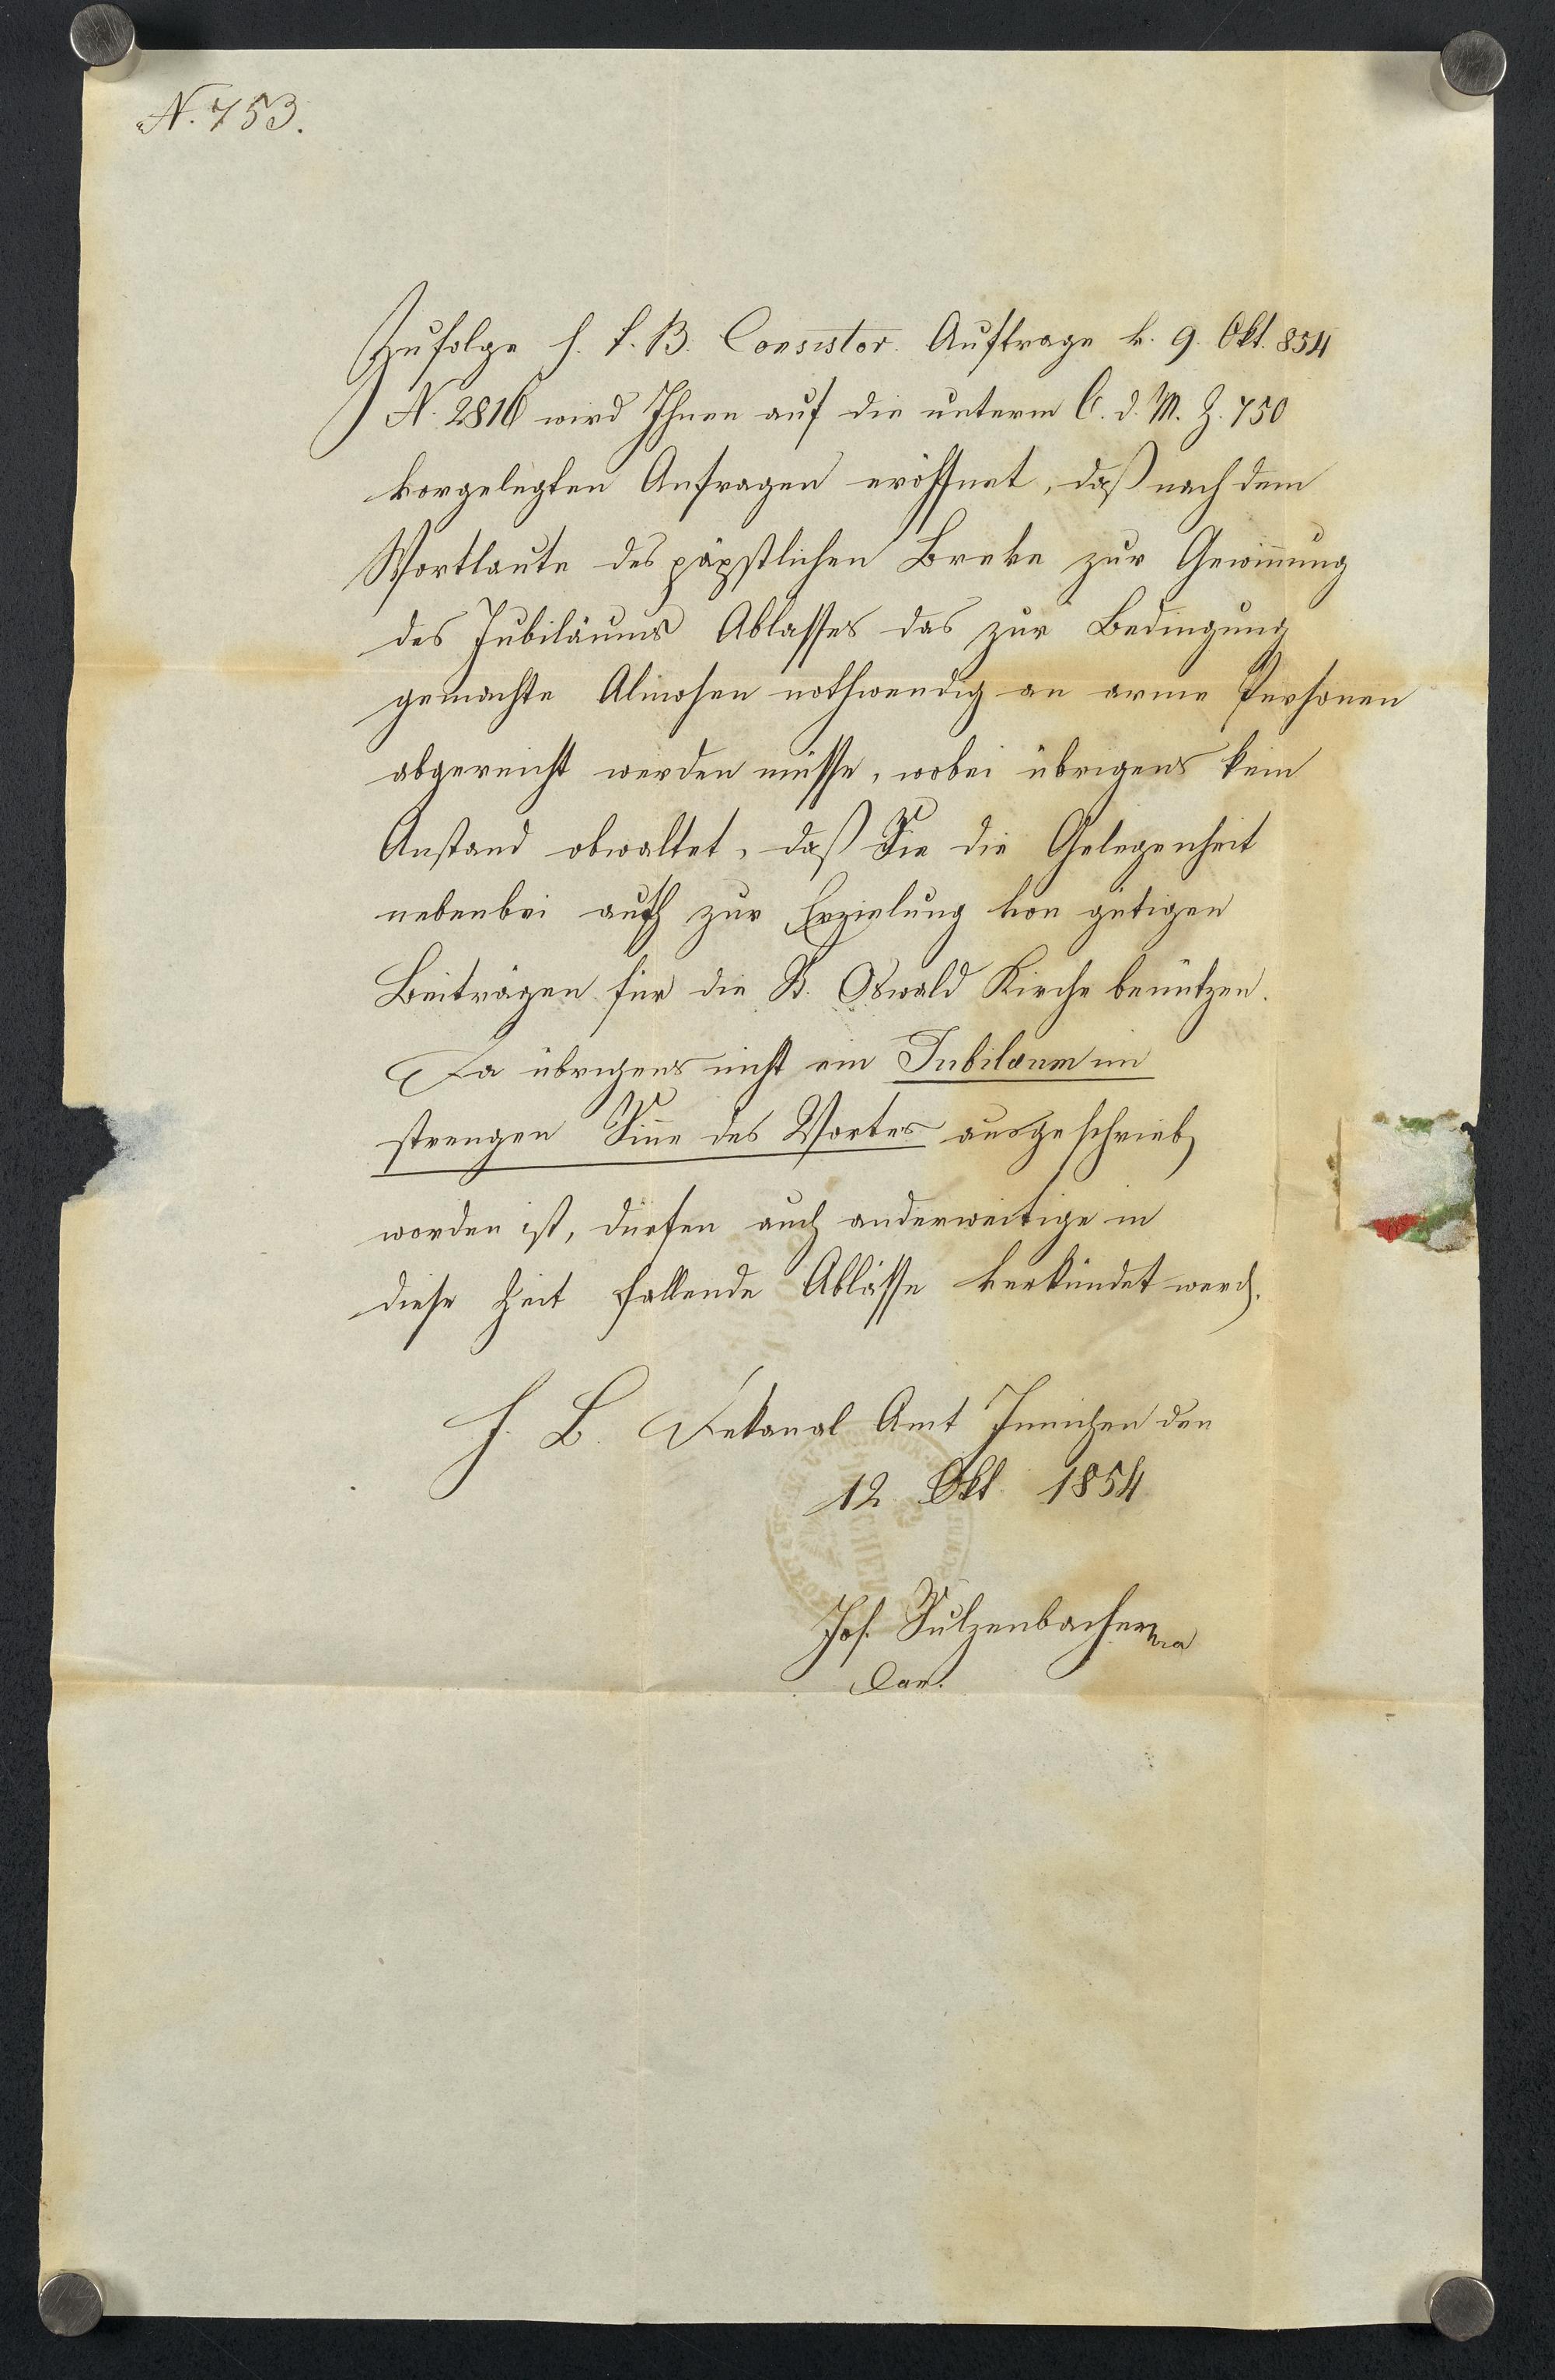 N. 753.
Zufolge h. f. B. Consistor. Auftrage v. 9. Okt. 854
N. 2816 wird Ihnen auf die unterm 6. d. M. Z. 750
vorgelegten Anfragen eröffnet, daß nach dem
Wortlaute des päpstlichen Breve zur Gewinnung
des Jubiläums Ablasses das zur Bedingung
gemachte Almosen nothwendig an arme Personen
abgereicht werden müsse, wobei übrigens kein
Anstand obwaltet, daß Sie die Gelegenheit
nebenbei auch zur Erzielung von gütigen
Beiträgen für die St. Oswald Kirche benützen.
Da übrigens nicht ein Jubilaeum im
strengen Sinne des Wortes ausgeschrieb
worden ist, dürfen auch anderweitige in
diese Zeit fallende Ablässe verkündet werd.
F. B. Dekanal Amt Innichen den
12 Okt 1854
Jos. Sulzenbacher
Can.